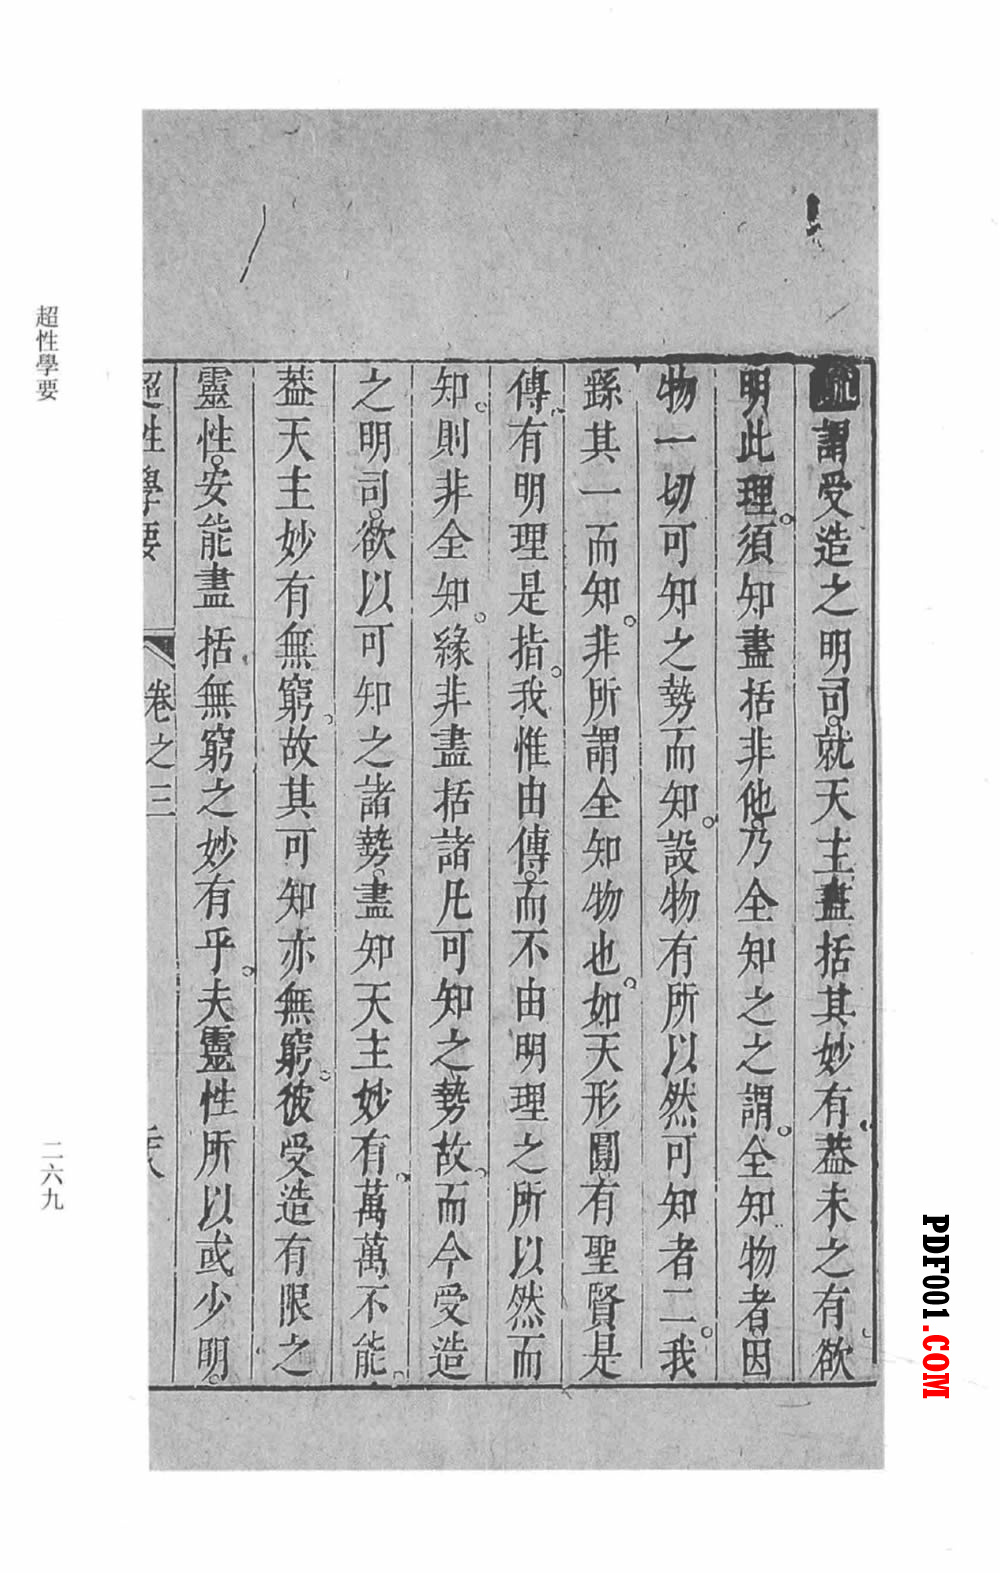 疏謂受造之明司。就天主盡括其妙有。葢未之有。欲
明此理。須知盡括非他。乃全知之之謂。全知物者。因
物一切可知之勢而知。設物有所以然可知者二。我
繇其一而知。非所謂全知物也。如天形圓。有聖賢是
傳。有明理是指。我惟由傳。而不由明理之所以然而
知。則非全知。緣非盡括諸凡可知之勢故。而今受造
之明司。欲以可知之諸勢。盡知天主妙有。萬萬不能。
葢天主妙有無窮。故其可知亦無窮。彼受造有限之
靈性。安能盡括無窮之妙有乎。夫靈性所以或少明。
超性學要
卷之三
超性學要
二六九
PDF001.COM